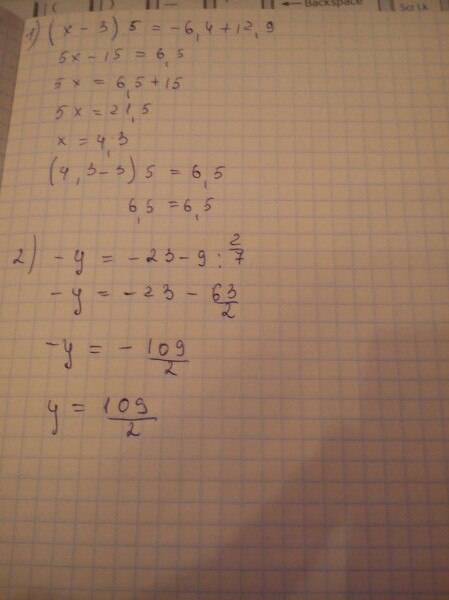 ← Backspace
Scr Lk
1) (x - 3) 5 = -6,4 + 12,9
5x - 15 = 6,5
5x = 6,5 + 15
5x = 21,5
x = 4,3
(4,3 - 3) 5 = 6,5
6,5 = 6,5
2) - y = - 23 - 9 : 2/7
- y = - 23 - 63/2
- y = - 109/2
y = 109/2